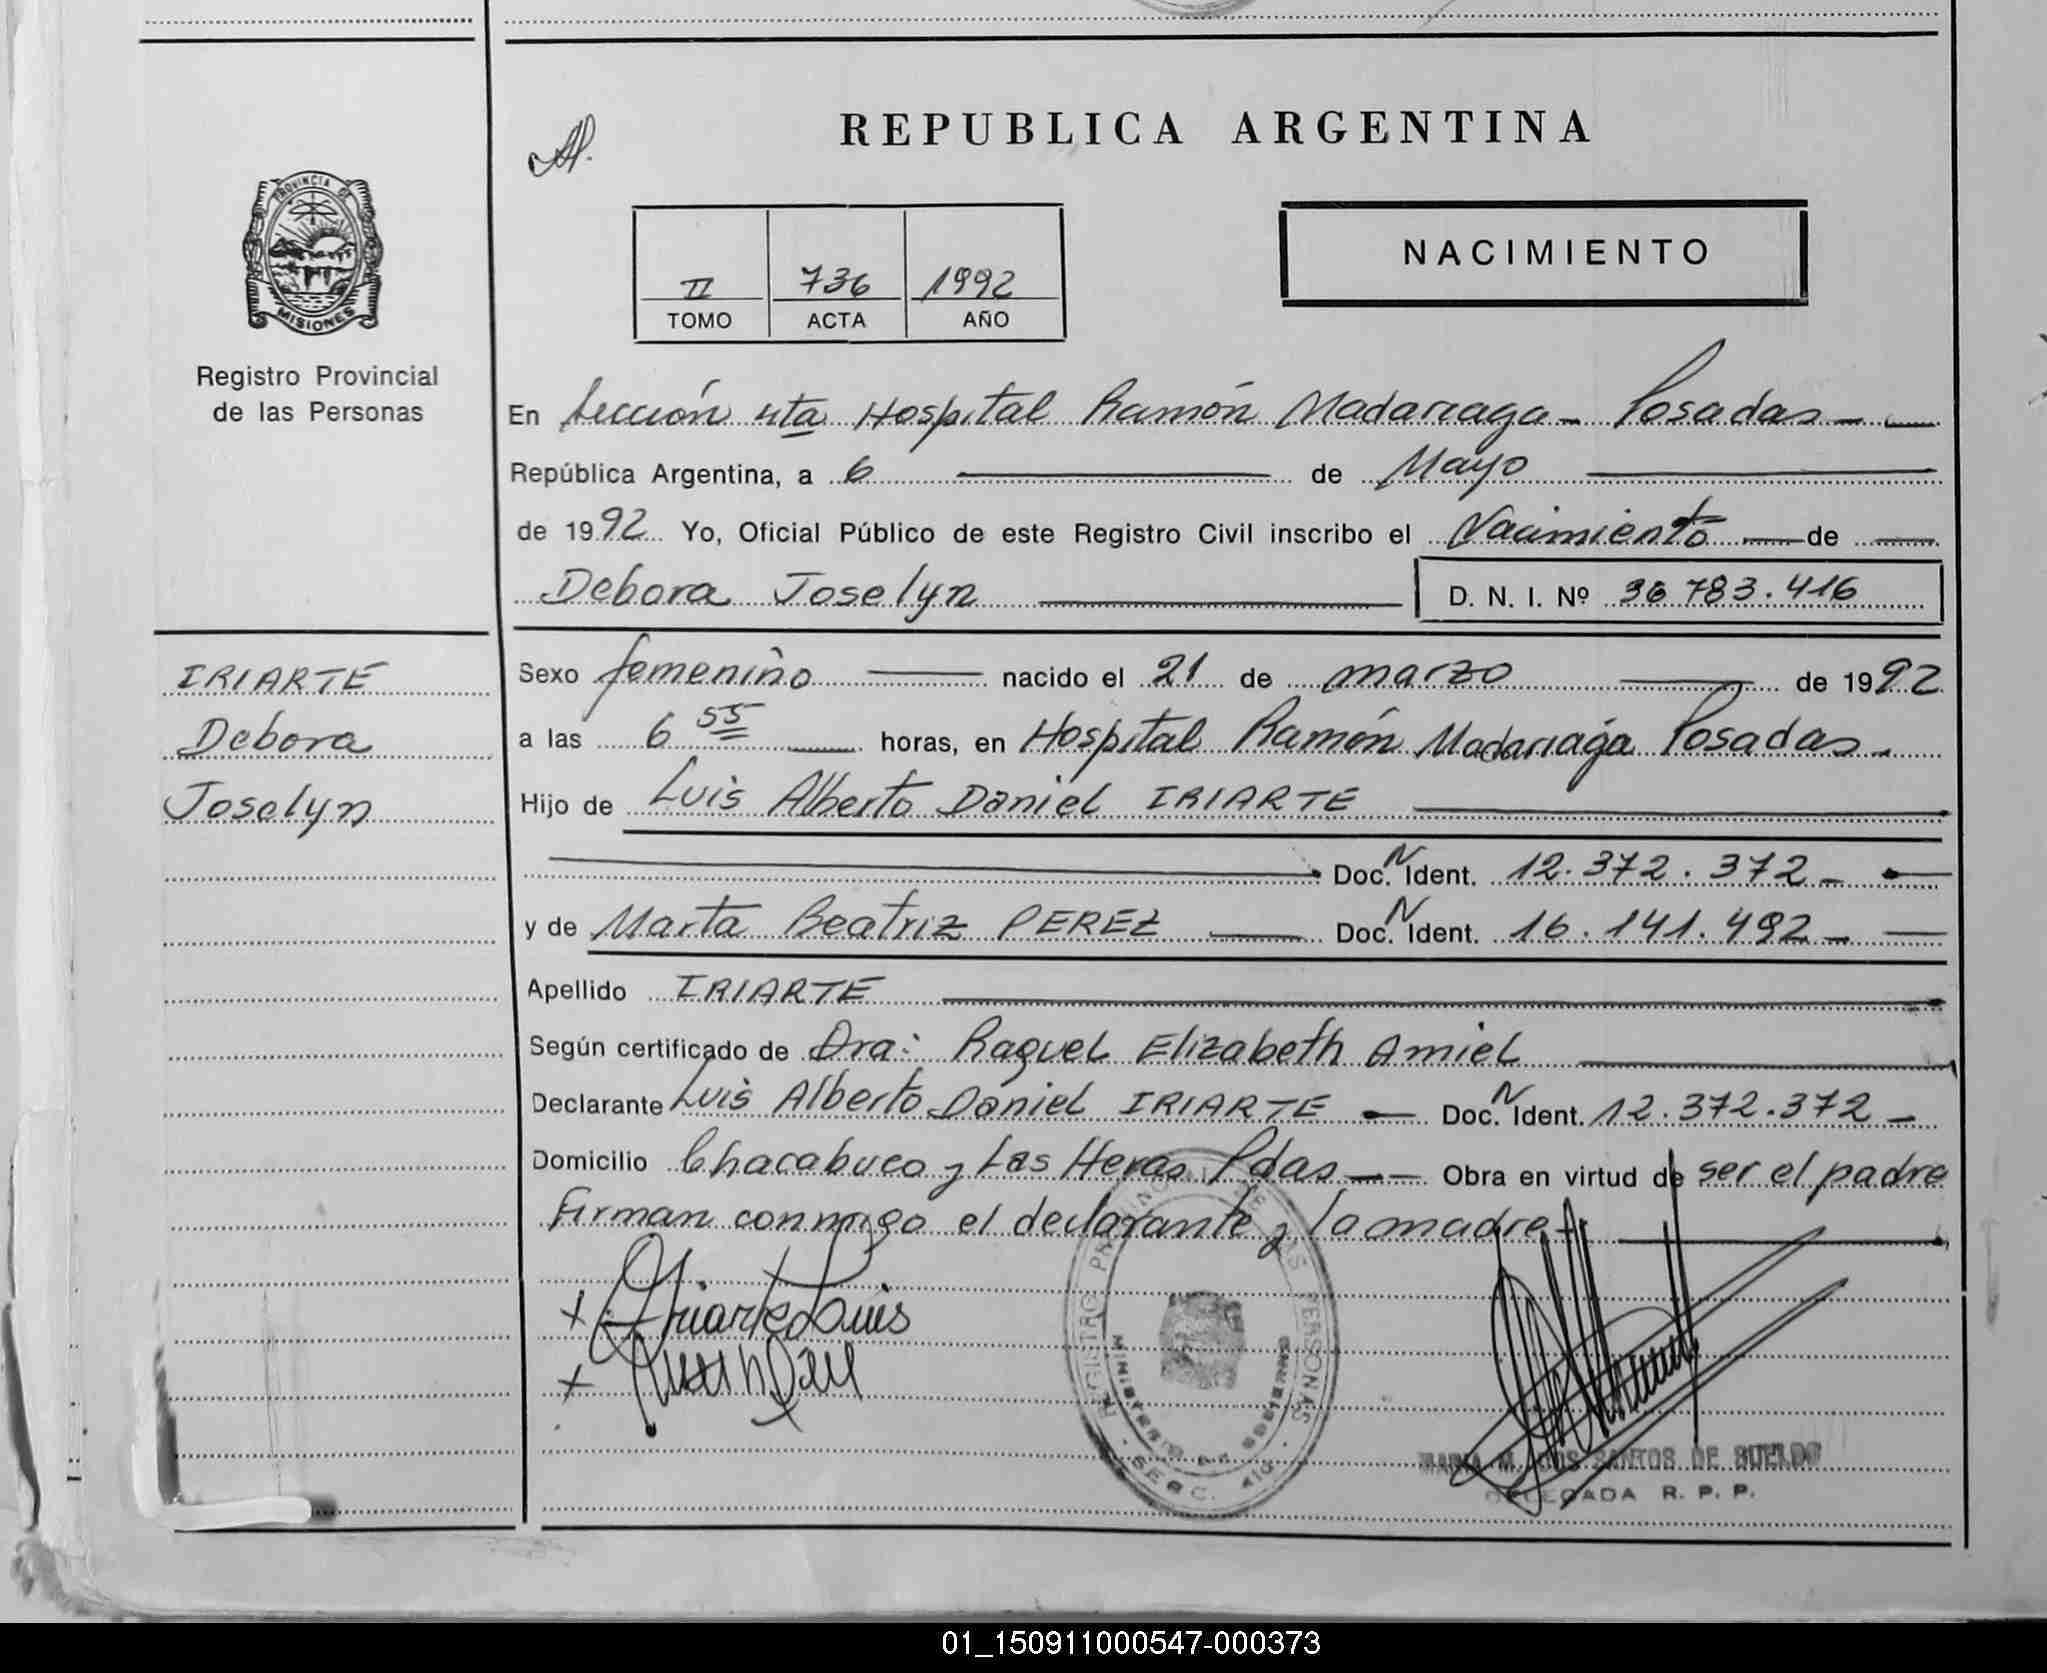 REPUBLICA ARGENTINA
PROVINCIA DE
MISIONES
Registro Provincial
de las Personas
NACIMIENTO
II 736 1992
TOMO ACTA AÑO
En Sección 4ta Hospital Ramón Madariaga - Posadas -
República Argentina, a 6 de Mayo
de 1992 Yo, Oficial Público de este Registro Civil inscribo el Nacimiento de
Debora Joselyn D. N. I. Nº 36 783.416
IRIARTE
Debora
Joselyn
Sexo femenino nacido el 21 de marzo de 1992
a las 6 55 horas, en Hospital Ramón Madariaga Posadas -
Hijo de Luis Alberto Daniel IRIARTE
Doc. N Ident. 12.372.372 -
y de Marta Beatriz PEREZ Doc. N Ident. 16.141.492 -
Apellido IRIARTE
Según certificado de Dra: Raquel Elizabeth Amiel
Declarante Luis Alberto Daniel IRIARTE Doc. N Ident. 12.372.372 -
Domicilio Chacabuco y Las Heras Pdas - Obra en virtud de ser el padre
Firman conmigo el declarante y la madre -
x Iriarte Luis
x
REGISTRO PROVINCIAL DE LAS PERSONAS
MINISTERIO DE GOBIERNO
SECC. 4ta.
MARIA M. DOS SANTOS DE SUELDO
DELEGADA R. P. P.
01_150911000547-000373